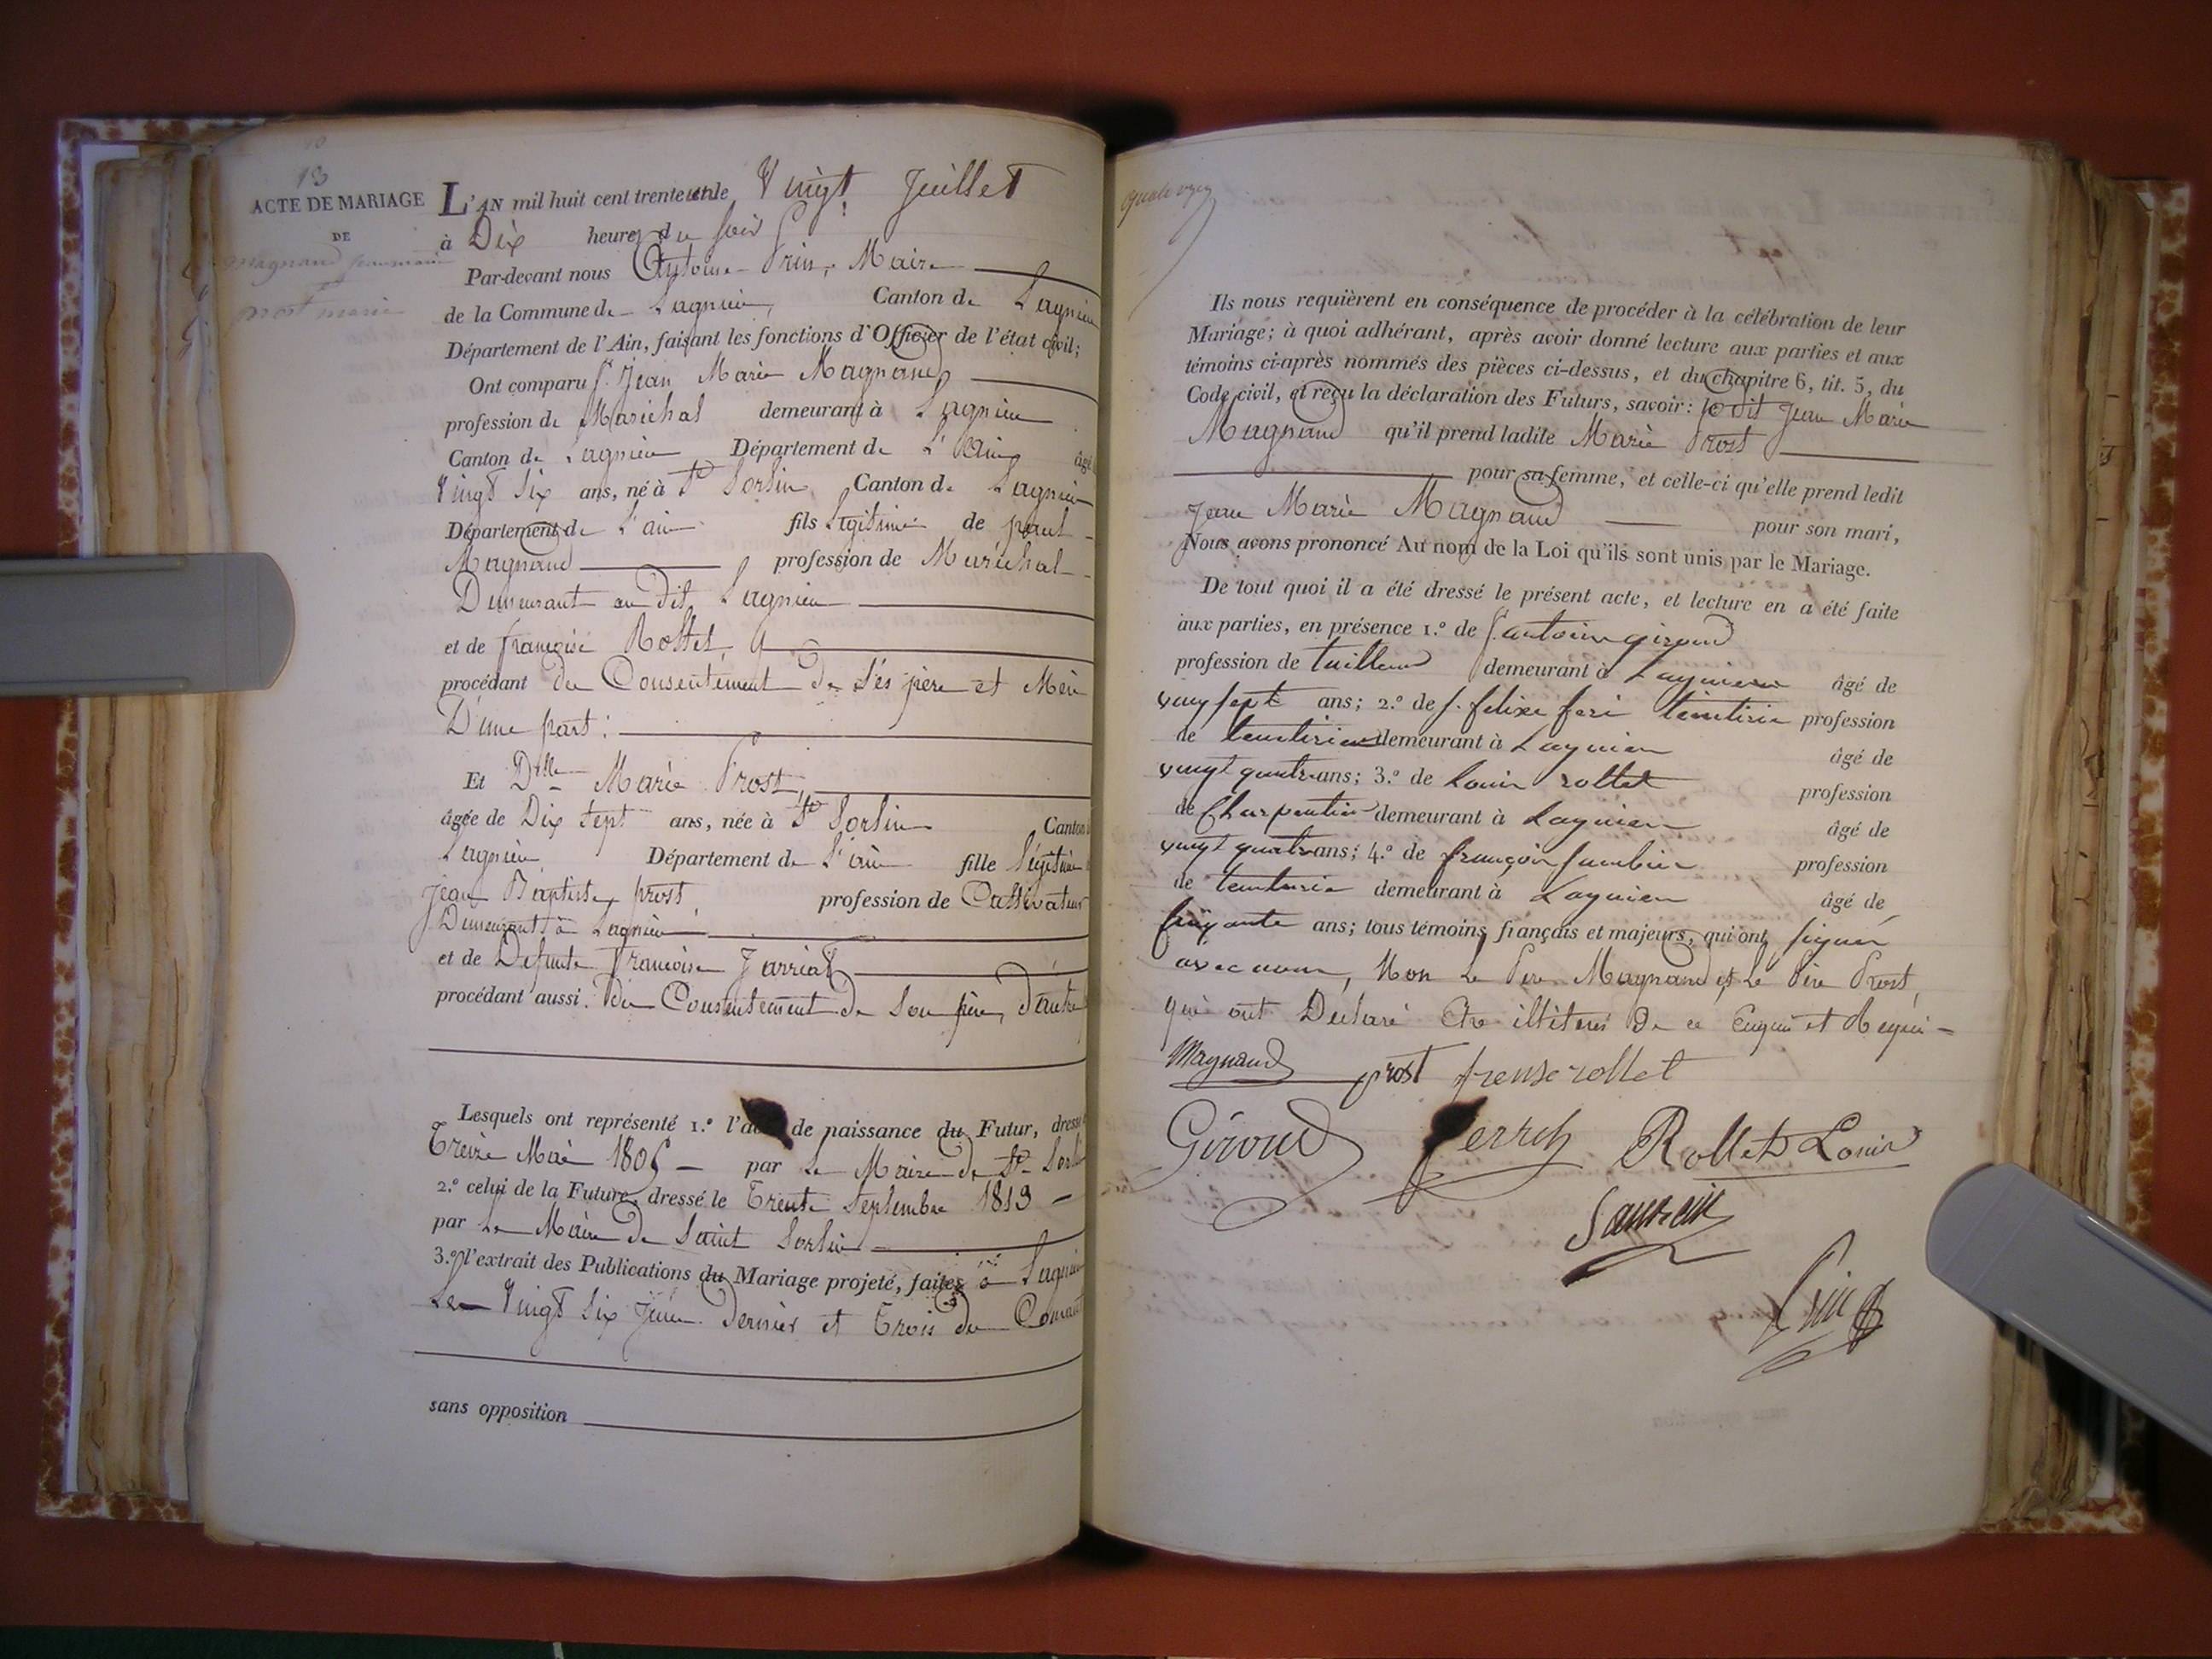 13
ACTE DE MARIAGE
DE
Magnand jean marie
prost marie
L'AN mil huit cent trente un le Vingt Juillet
à Dix heures du soir
Par-devant nous Antoine Prin, Maire
de la Commune de Lagnieu, Canton de Lagnieu
Département de l'Ain, faisant les fonctions d'Officier de l'état civil;
Ont comparu s. Jean Marie Magnand
profession de Maréchal demeurant à Lagnieu
Canton de Lagnieu Département de L'Ain âgé
Vingt Six ans, né à St Sorlin Canton de Lagnieu
Département de L'ain fils Legitime de paul
Magnand profession de Maréchal
Demeurant au dit Lagnieu
et de françoise Rollet
procédant du Consentement de Ses père et Mère
D'une part:
Et Dlle Marie Prost,
âgée de Dix Sept ans, née à St Sorlin Canton
Lagnieu Département de L'ain fille Légitime
Jean Baptiste prost profession de Cultivateur
Demeurant à Lagnieu
et de Defunte Françoise Jarriat
procédant aussi du Consentement de Son père, d'autre
Lesquels ont représenté 1.º l'acte de naissance du Futur, dressé
Treize Mai 1805 par Le Maire de St Sorlin
2.º celui de la Future, dressé le Trente Septembre 1813
par Le Maire de Saint Sorlin
3.º l'extrait des Publications du Mariage projeté, faites à Lagnieu
Les Vingt Six Juin Dernier et Trois du Courant
sans opposition
Ils nous requièrent en conséquence de procéder à la célébration de leur
Mariage; à quoi adhérant, après avoir donné lecture aux parties et aux
témoins ci-après nommés des pièces ci-dessus, et du chapitre 6, tit. 5, du
Code civil, et reçu la déclaration des Futurs, savoir: le dit Jean Marie
Magnand qu'il prend ladite Marie Prost
pour sa femme, et celle-ci qu'elle prend ledit
Jean Marie Magnand pour son mari,
Nous avons prononcé Au nom de la Loi qu'ils sont unis par le Mariage.
De tout quoi il a été dressé le présent acte, et lecture en a été faite
aux parties, en présence 1.º de s. antoine giroud
profession de tailleur demeurant à Lagnieu âgé de
vingt sept ans; 2.º de s. felixe profession
de demeurant à Lagnieu âgé de
vingt quatre ans; 3.º de Louis rollet profession
de Charpentier demeurant à Lagnieu âgé de
vingt quatre ans; 4.º de françois profession
de demeurant à Lagnieu âgé de
soixante ans; tous témoins français et majeurs, qui ont signés
avec nous, Non Le Père Magnand et Le Père Prost,
qui ont Declaré Etre illitérés De ce Enquis et Requis
Magnand prost frense rollet
Giroud Rollet Louis
Prin